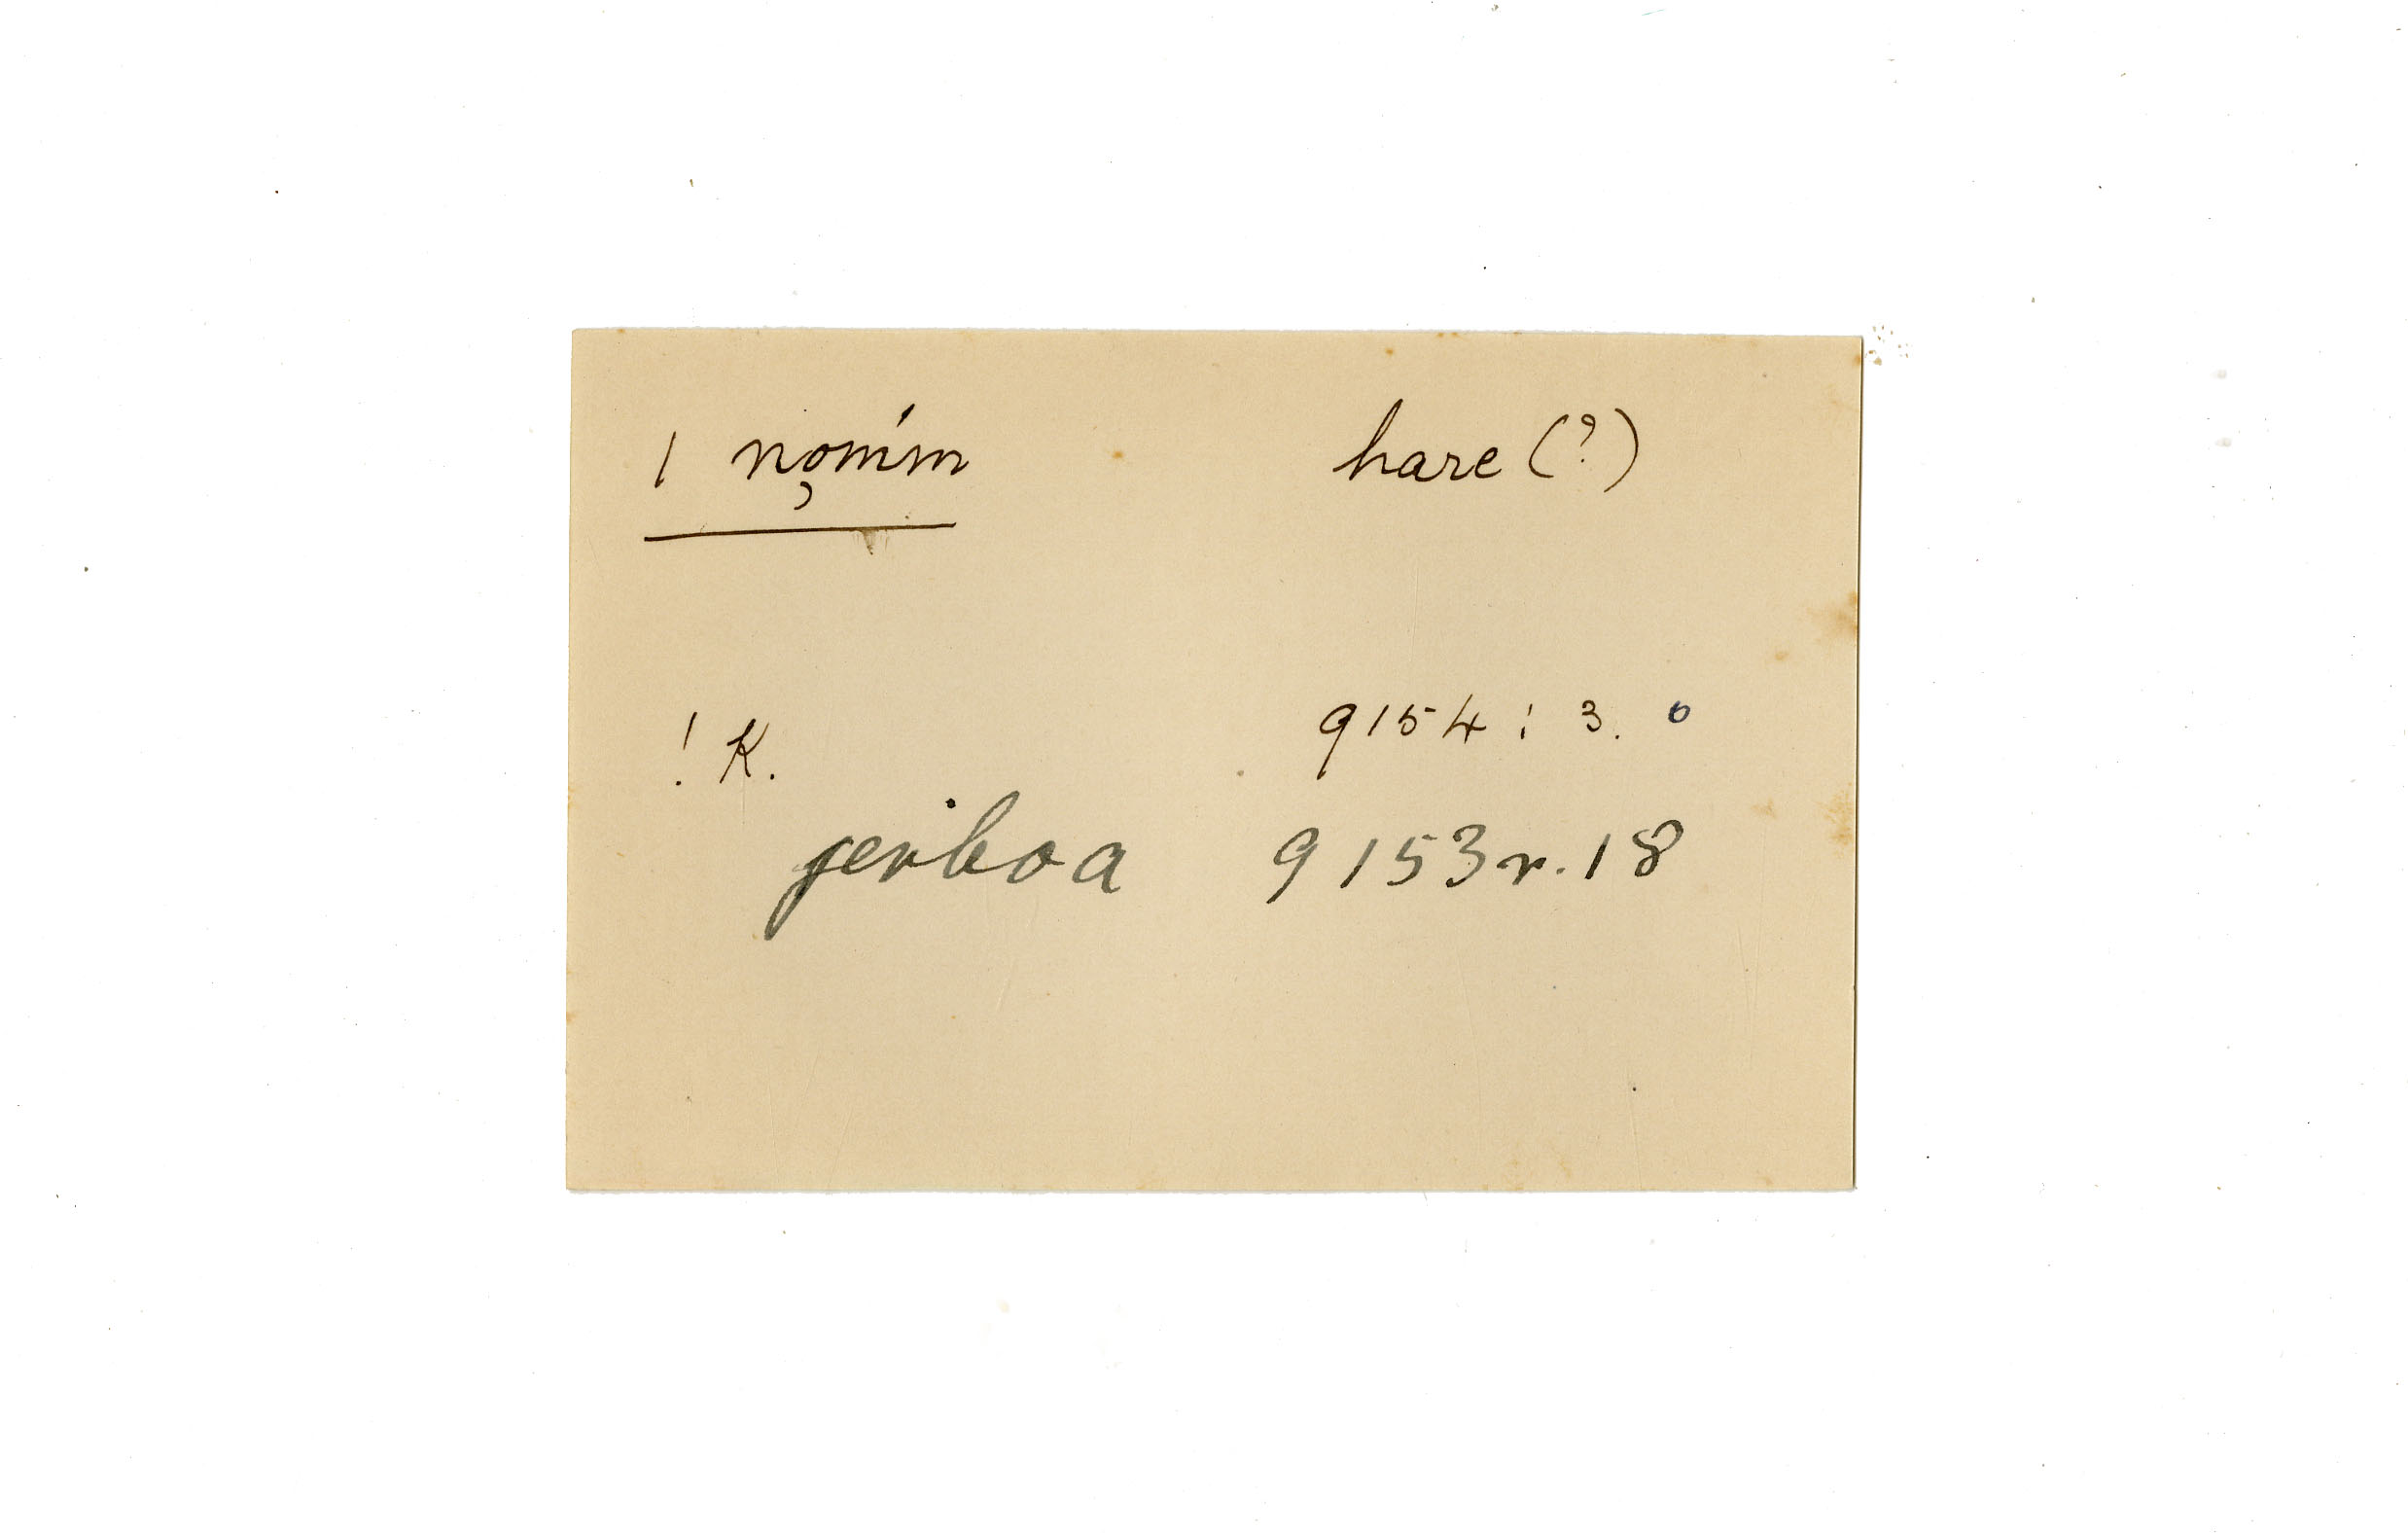 / nǫḿm hare (?)
! K. 9154 ; 3. 6
jerboa 9153 r. 18